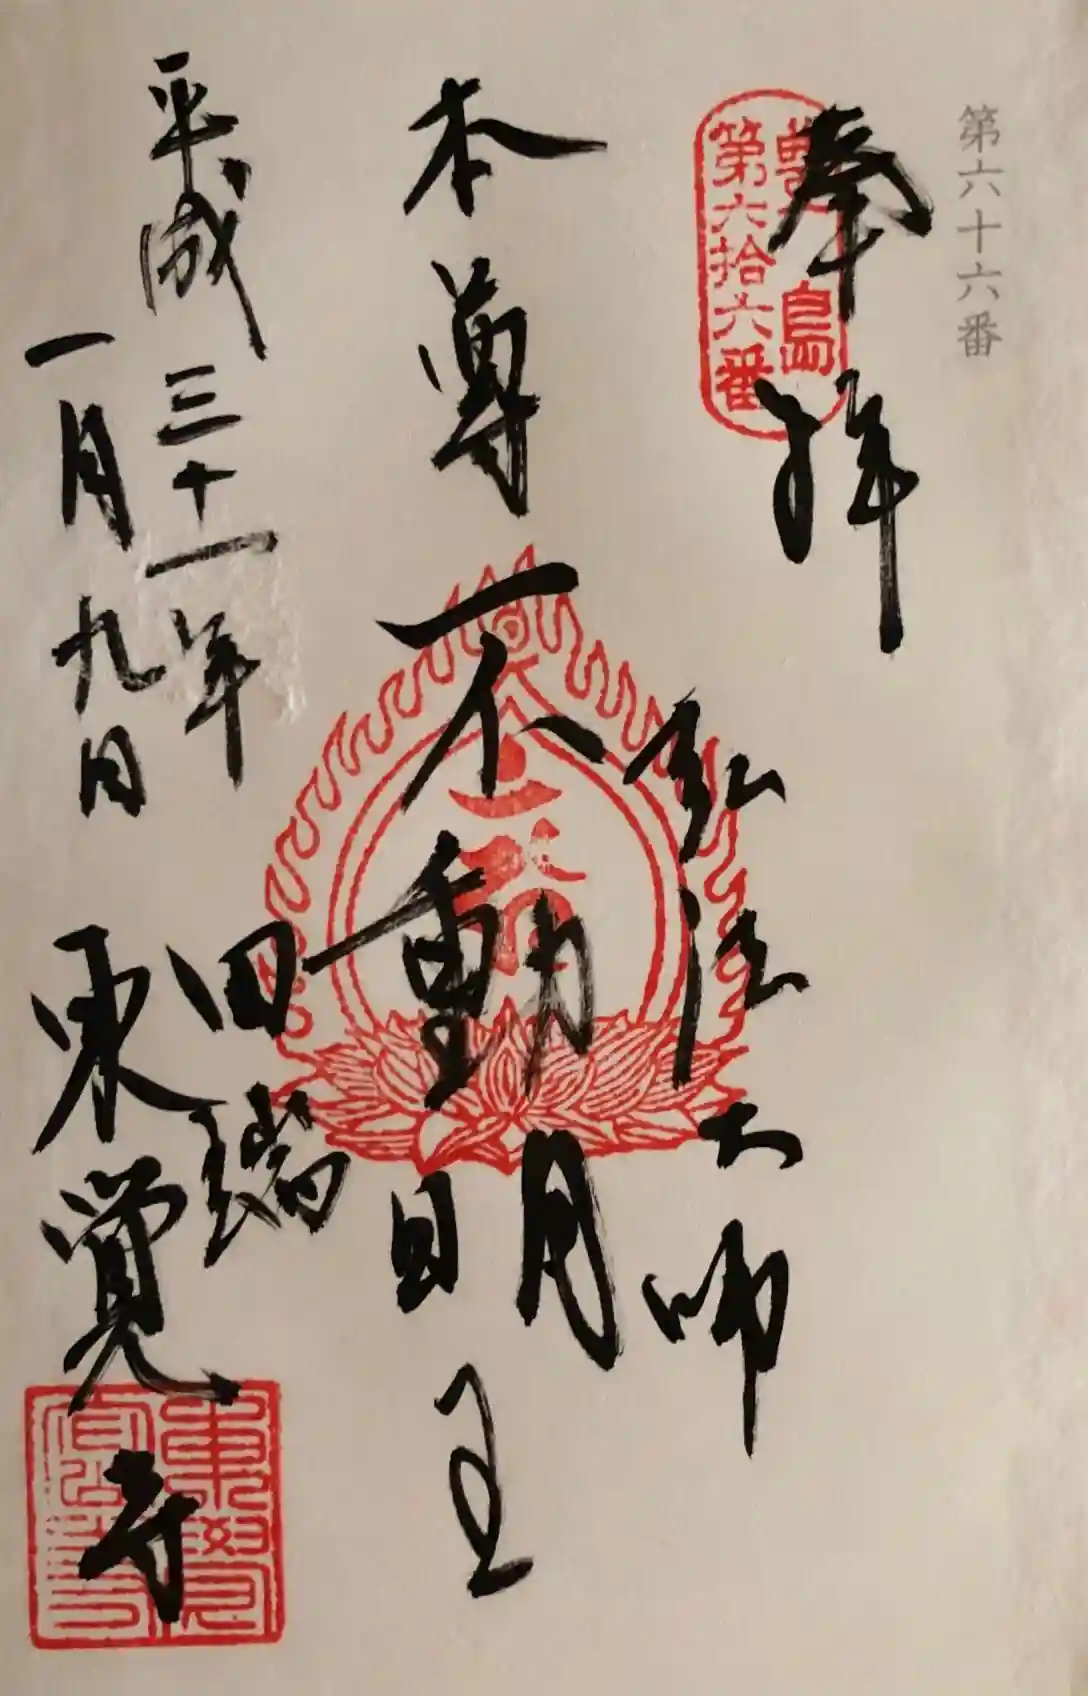 第六十六番
奉拝
豊島
第六拾六番
弘法大師
本尊不動明王
平成三十一年
一月九日
田端
東覺寺